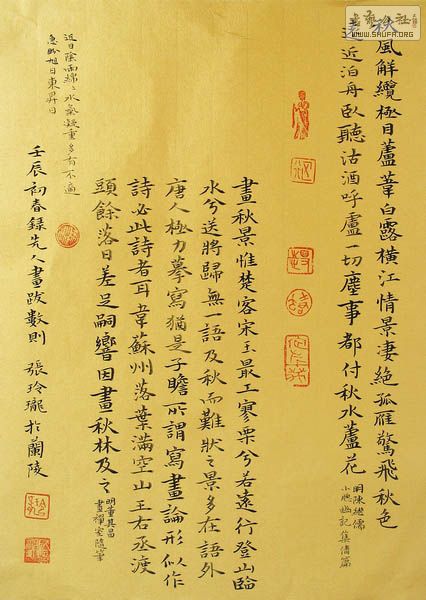 秋風解纜極目蘆葦白露橫江情景淒絕孤雁驚飛秋色
遠近泊舟臥聽沽酒呼盧一切塵事都付秋水蘆花
明陳繼儒
小窗幽記集倩篇
畫秋景惟楚客宋玉最工寥栗兮若遠行登山臨
水兮送將歸無一語及秋而難狀之景多在語外
唐人極力摹寫猶是子瞻所謂寫畫論形似作
詩必此詩者耳韋蘇州落葉滿空山王右丞渡
頭餘落日差足嗣響因畫秋林及之
明董其昌
畫禪室隨筆
近日陰雨綿〻水氣凝重多有不適
急盼旭日東昇日
壬辰初春錄先人畫跋數則 張玲瓏於蘭陵
WWW.SHUFA.ORG